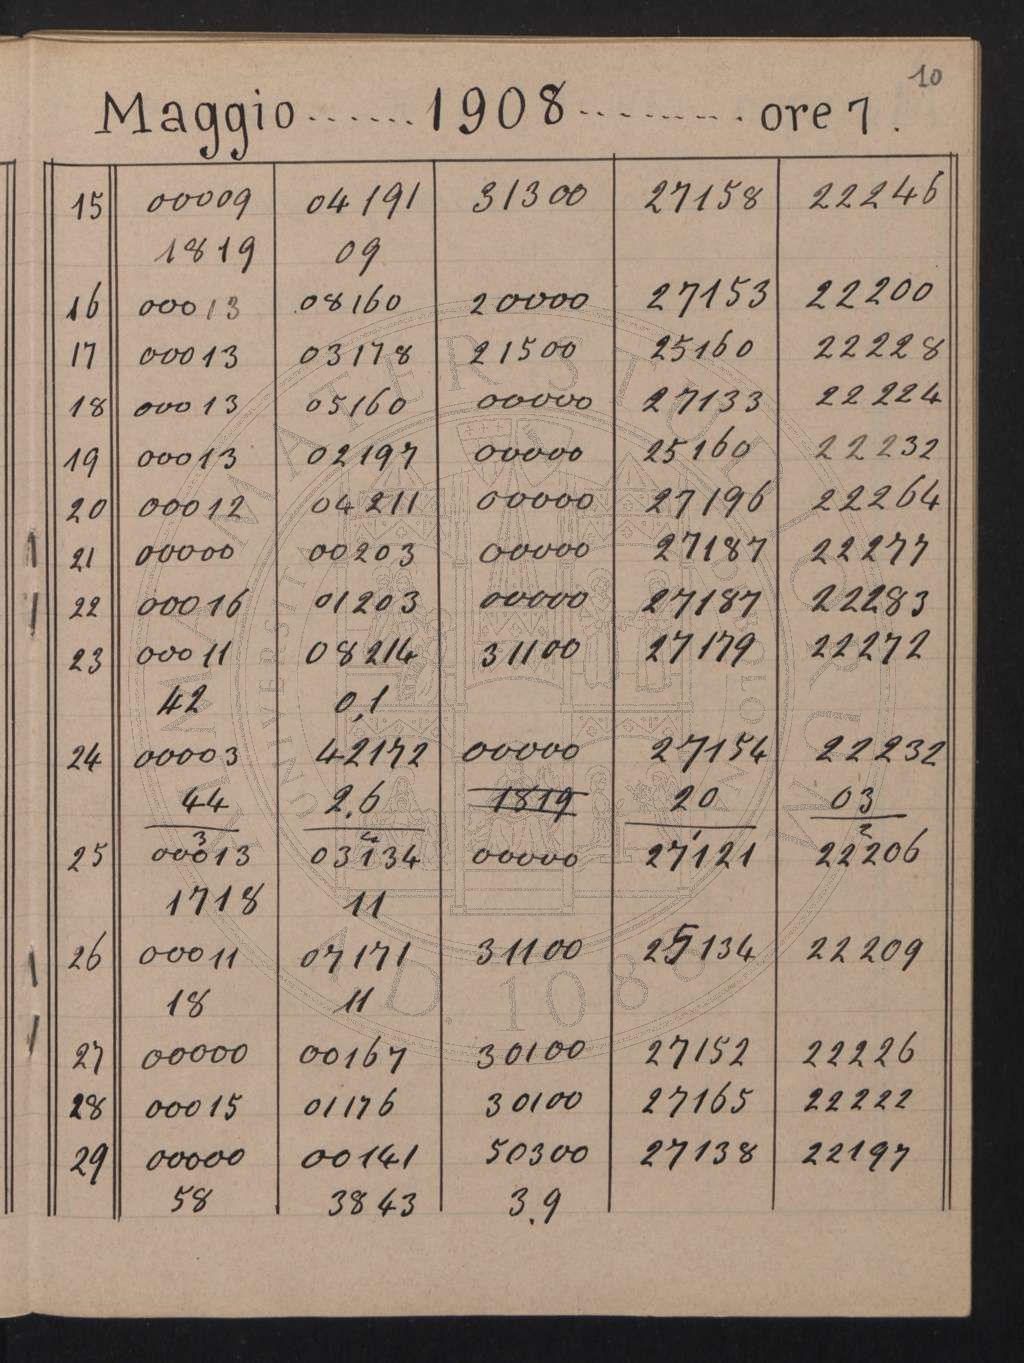 10
Maggio ...... 1908 ......... ore 7.
15 00009 04191 31300 27158 22246
1819 09
16 00013 08160 20000 27153 22200
17 00013 03178 21500 25160 22228
18 00013 05160 00000 27133 22224
19 00013 02197 00000 25160 22232
20 00012 04211 00000 27196 22264
21 00000 00203 00000 27187 22277
22 00016 01203 00000 27187 22283
23 00011 08214 31100 27179 22272
42 0,1
24 00003 42172 00000 27154 22232
44 2.6 1819 20 03
3 2 1 2
25 00013 03134 00000 27121 22206
1718 11
26 00011 07171 31100 25134 22209
18 11
27 00000 00167 30100 27152 22226
28 00015 01176 30100 27165 22222
29 00000 00141 50300 27138 22197
58 3843 3.9
ALMA MATER STUDIORUM
A.D. 1088